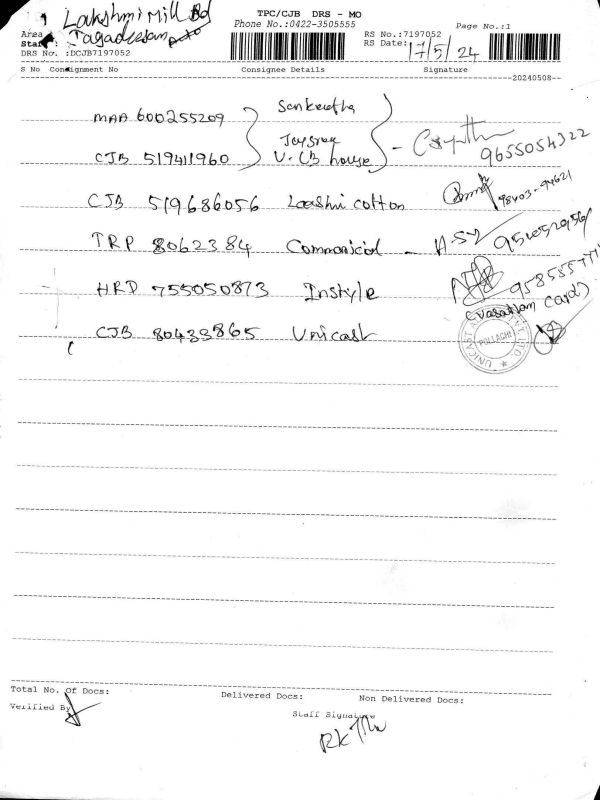 Lakshmi Mill Rd
TPC/CJB DRS - MO
Phone No.:0422-3505555
Page No.:1
Area
Jagadeesan
Staff
DRS No. :DCJB7197052
RS No.:7197052
RS Date: 17/5/24
S No Consignment No Consignee Details Signature
20240508
MAA 600255209
CJB 519411960 V-CB house
9655054322
CJB 519686056 Laxshmi cotton
98403-94621
TRP 8062384 Commanicial -
HRD 755050873 Instyle
(Vasantham Card)
CJB 80433865 Unicast
UNICAST
POLLACHI
Total No. Of Docs: Delivered Docs: Non Delivered Docs:
Verified By
Staff Signature